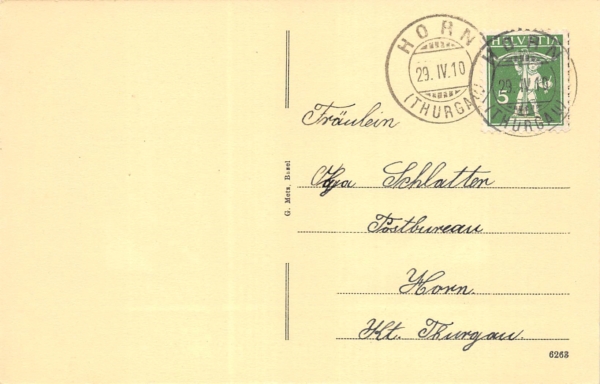 HORN
29. IV. 10
(THURGAU)
HELVETIA
5
HORN
29. IV. 10
(THURGAU)
Fräulein
Schlatter
Postbureau
Horn.
Kt. Thurgau.
G. Metz, Basel
6263